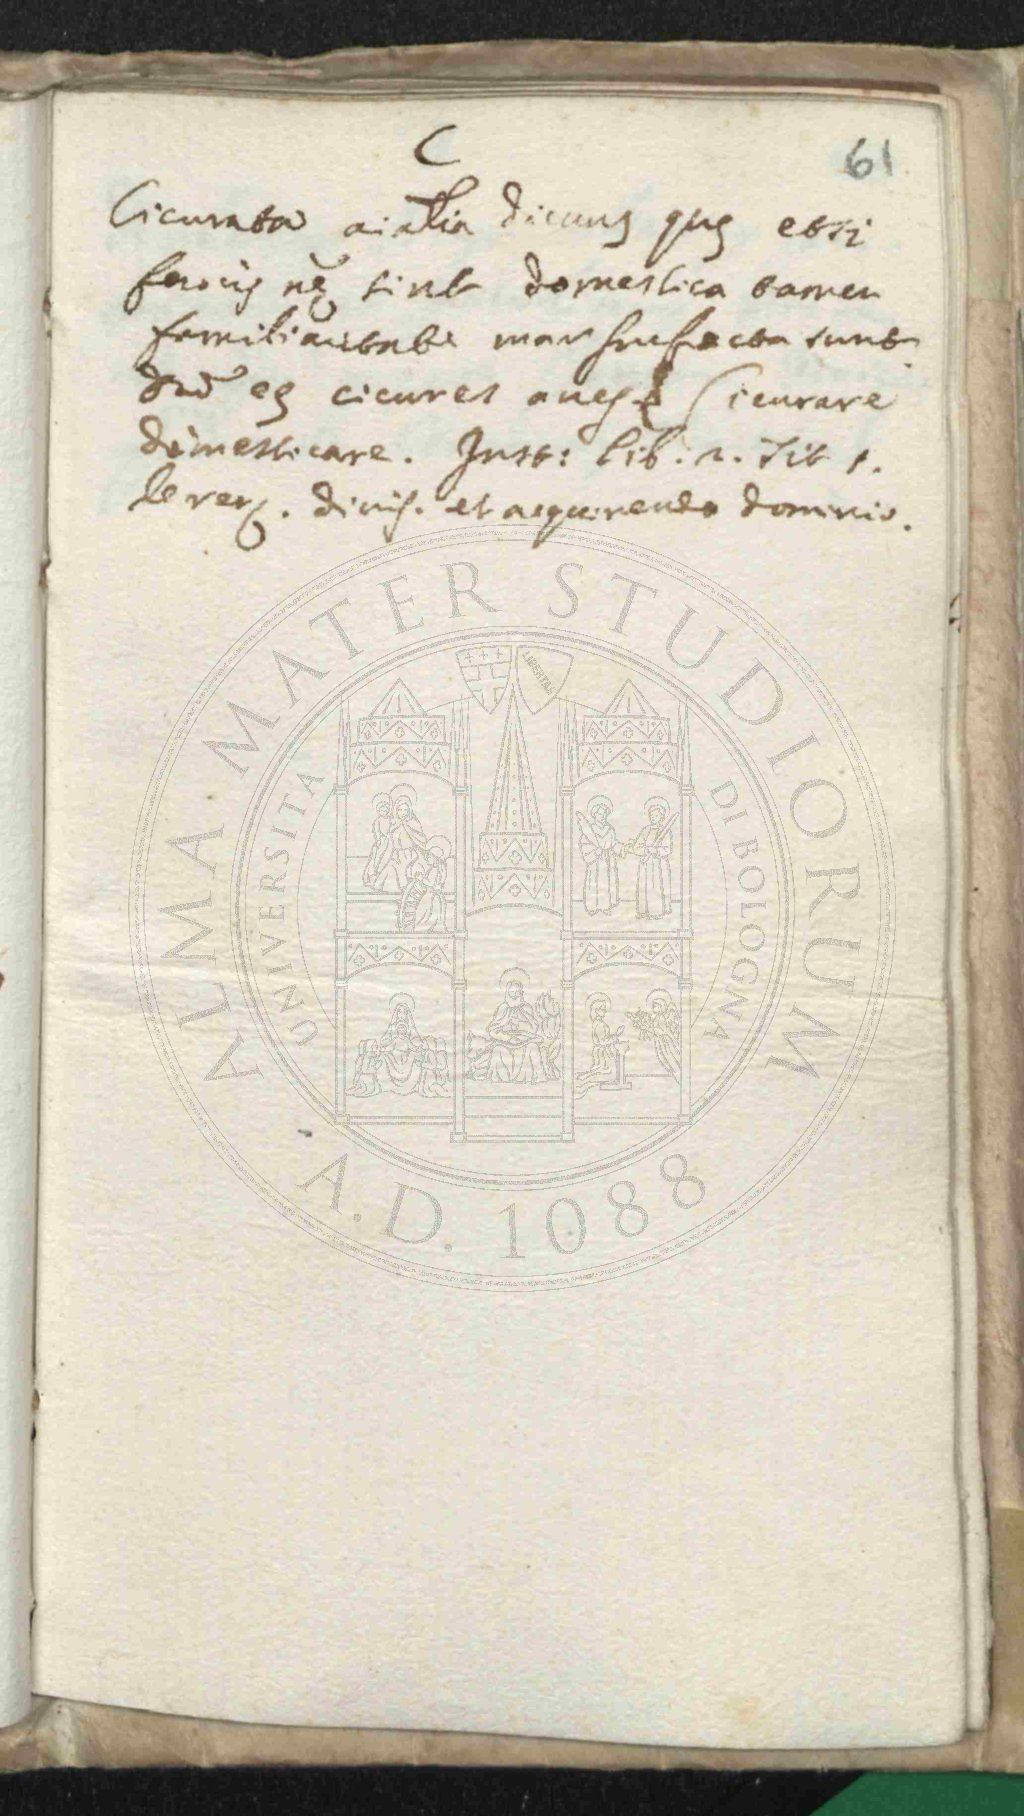 C
61
Cicurata aialia dicunt quae etsi
sint domestica tamen
familiaritate mansuefacta sunt.
cicures Cicurare
domesticare. Inst: lib. 2. Tit 1.
de rer. divis. et acquirendo dominio.
ALMA MATER STUDIORUM
UNIVERSITA DI BOLOGNA
LIBERTAS
A.D. 1088